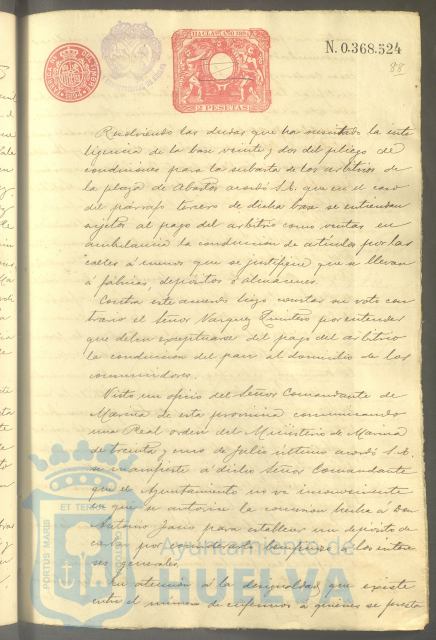 N. 0.368.524
88
HA CLASE AÑO 189
2 PESETAS
Resolviendo las dudas que ha suscitado la inte
ligencia de la base veinte y dos del pliego de
condiciones para la subasta de los arbitrios de
la plaza de Abastos acordó S.E. que en el caso
del párrafo tercero de dicha base se entiendan
sujetos al pago del arbitrio como ventas en
ambulancia la conducción de artículos por las
calles á menos que se justifique que se llevan
á fábricas, depósitos ó almacenes.
Contra este acuerdo hizo constar su voto con
trario el Señor Vazquez por entender
que deben exceptuarse del pago del arbitrio
la conducción del pan al domicilio de los
consumidores.
Visto un oficio del Señor Comandante de
Marina de esta provincia comunicando
una Real orden del Ministerio de Marina
de treinta y uno de Julio último acordó S.E.
se manifieste á dicho Señor Comandante
que el Ayuntamiento no vé inconveniente
en que se autorice la concesion hecha á Don
Antonio para establecer un depósito de
por considerarlo á los intere
ses generales.
En atención á la desigualdad que existe
entre el número de enfermos á quienes se presta
PORTUS MARIS ET TERRAE
Ayuntamiento de
HUELVA